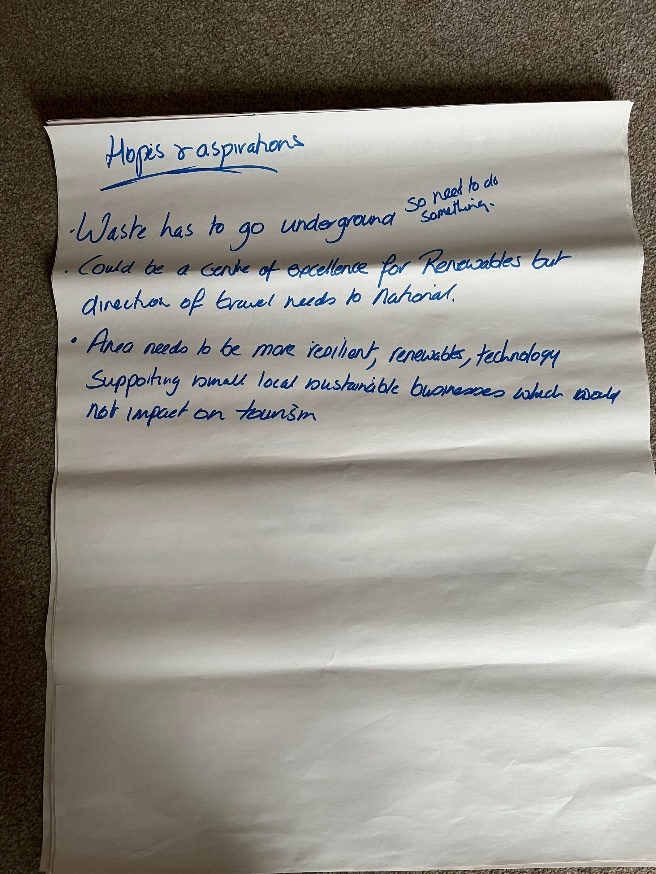 Hopes & aspirations
· Waste has to go underground so need to do
something.
· Could be a centre of excellence for Renewables but
direction of travel needs to National.
· Area needs to be more resilient, renewables, technology
supporting small local sustainable businesses which would
not impact on tourism